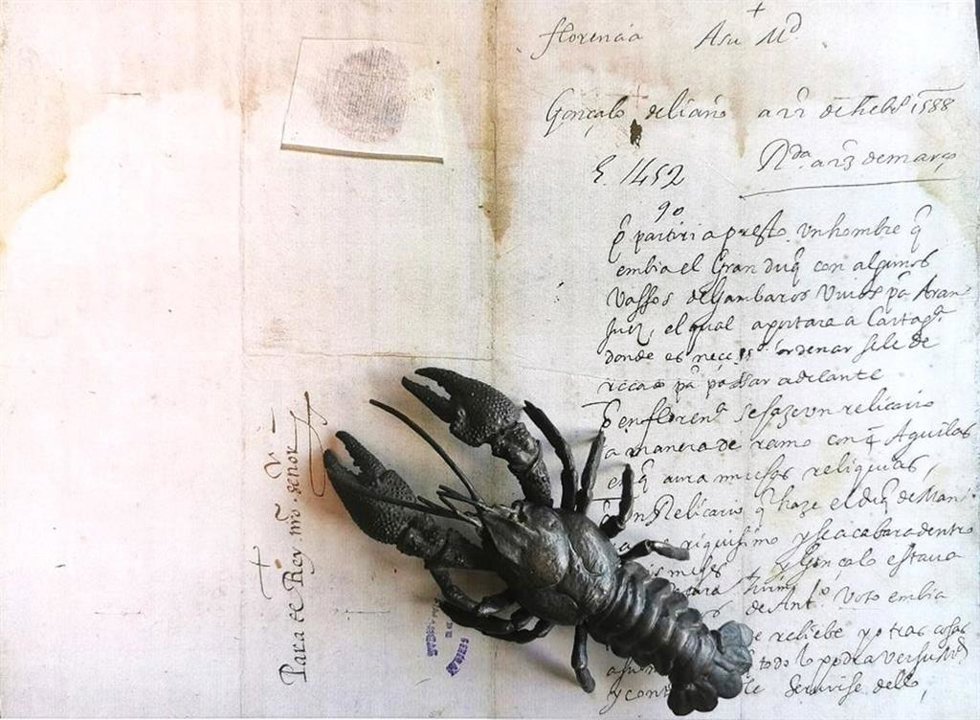 florencia Asu M^d
Gonçalo deliaño a 22 de heb^o 1588
R^da a 23 de março
E. 1452
90
q̃ partiria presto un hombre q̃
embia el Gran duq̃ con algunos
Vassos de Gambaros Vivos p^a Aran
juez, el qual aportara a Cartag^a
donde es necess^o ordenar sele de
recado p^a passar adelante
q̃ en floren^a se haze un relicario
a manera de ramo con 4 Aguilas
en q̃ aura muchas reliquias,
Un Relicario q̃ haze el duq̃ de Man
riquissimo y se acabara dentro
meses y Gonçalo estava
de Ant^o Voto embia
reliebe y otras cosas
todo lo podra ver su M^d
y servirse dello,
Para el Rey nr̃o señor